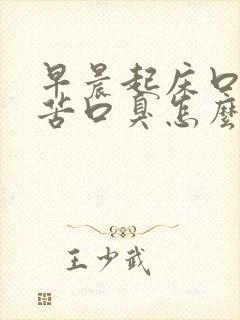 早晨起床口
苦口臭怎麼
王少武